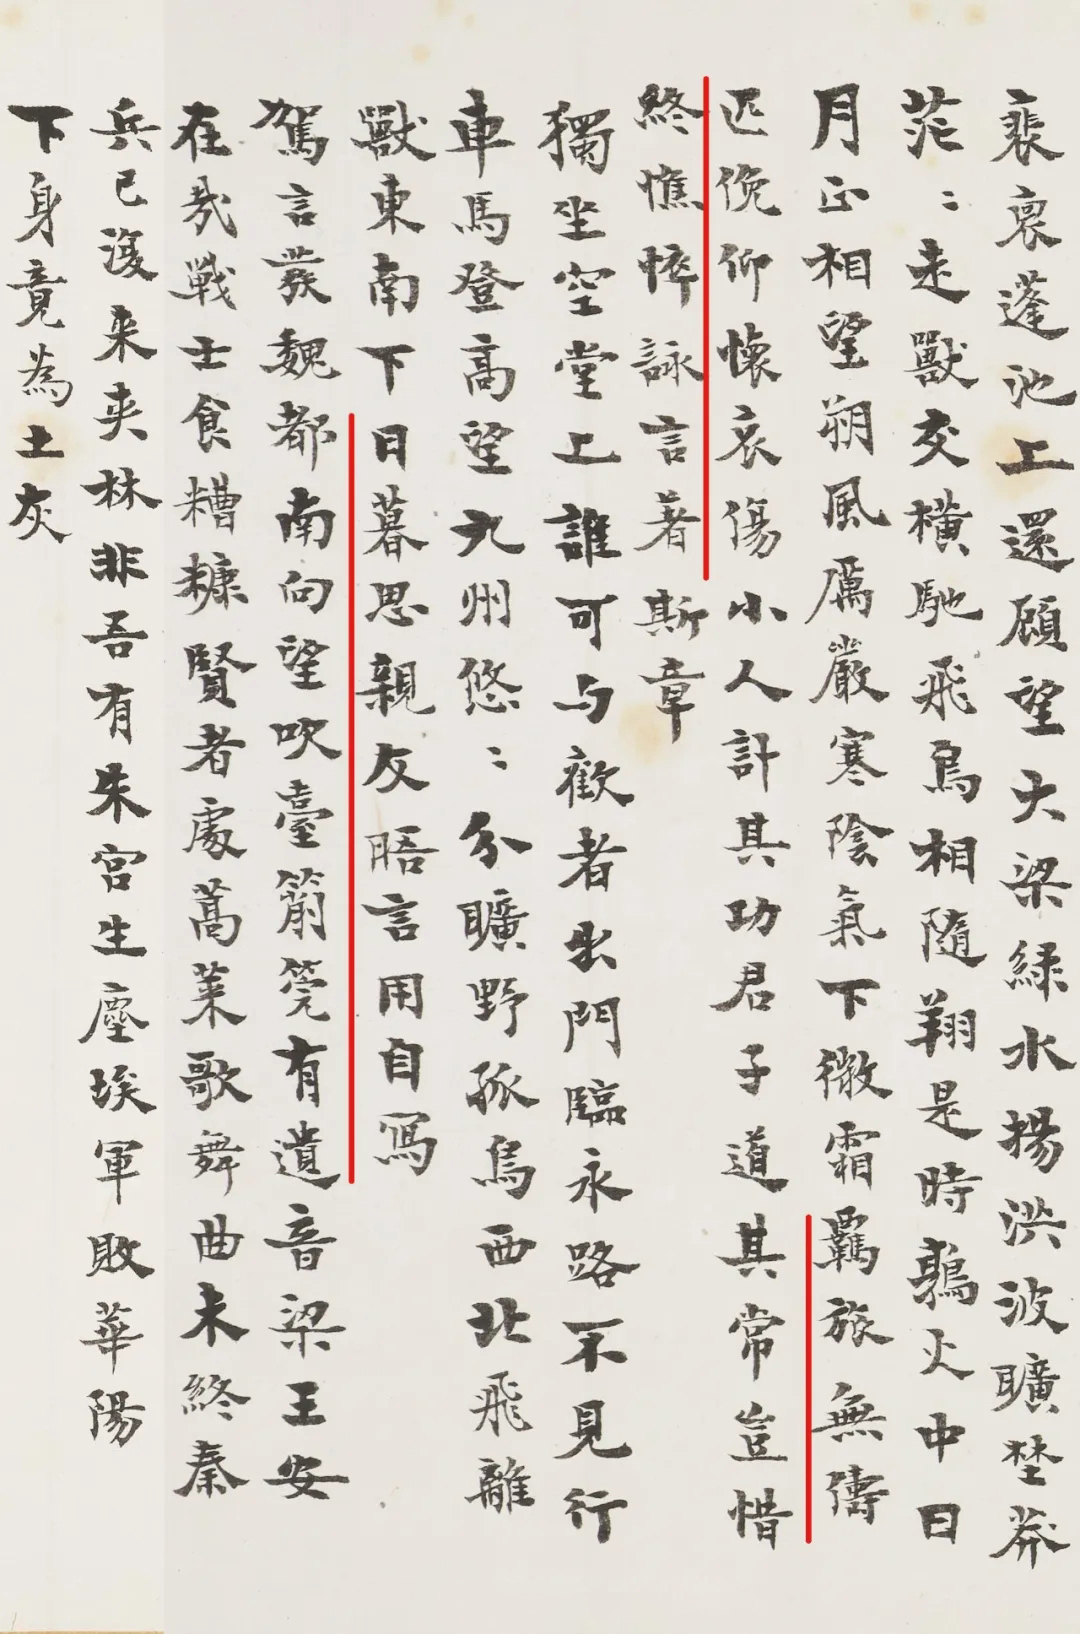 裴裒蓬池上還顧望大梁緑水揚洪波曠埜莽
茫〻走獸交橫馳飛鳥相隨翔是時鶉火中日
月正相望朔風厲嚴寒陰氣下微霜羈旅無儔
匹俛仰懷哀傷小人計其功君子道其常豈惜
終憔悴詠言著斯章
獨坐空堂上誰可与歡者出門臨永路不見行
車馬登高望九州悠〻分曠野孤鳥西北飛離
獸東南下日暮思親友晤言用自寫
駕言發魏都南向望吹臺簫筦有遺音梁王安
在哉戰士食糟糠賢者處蒿莱歌舞曲未終秦
兵已復来夾林非吾有朱宫生塵埃軍敗華陽
下身竟為土灰